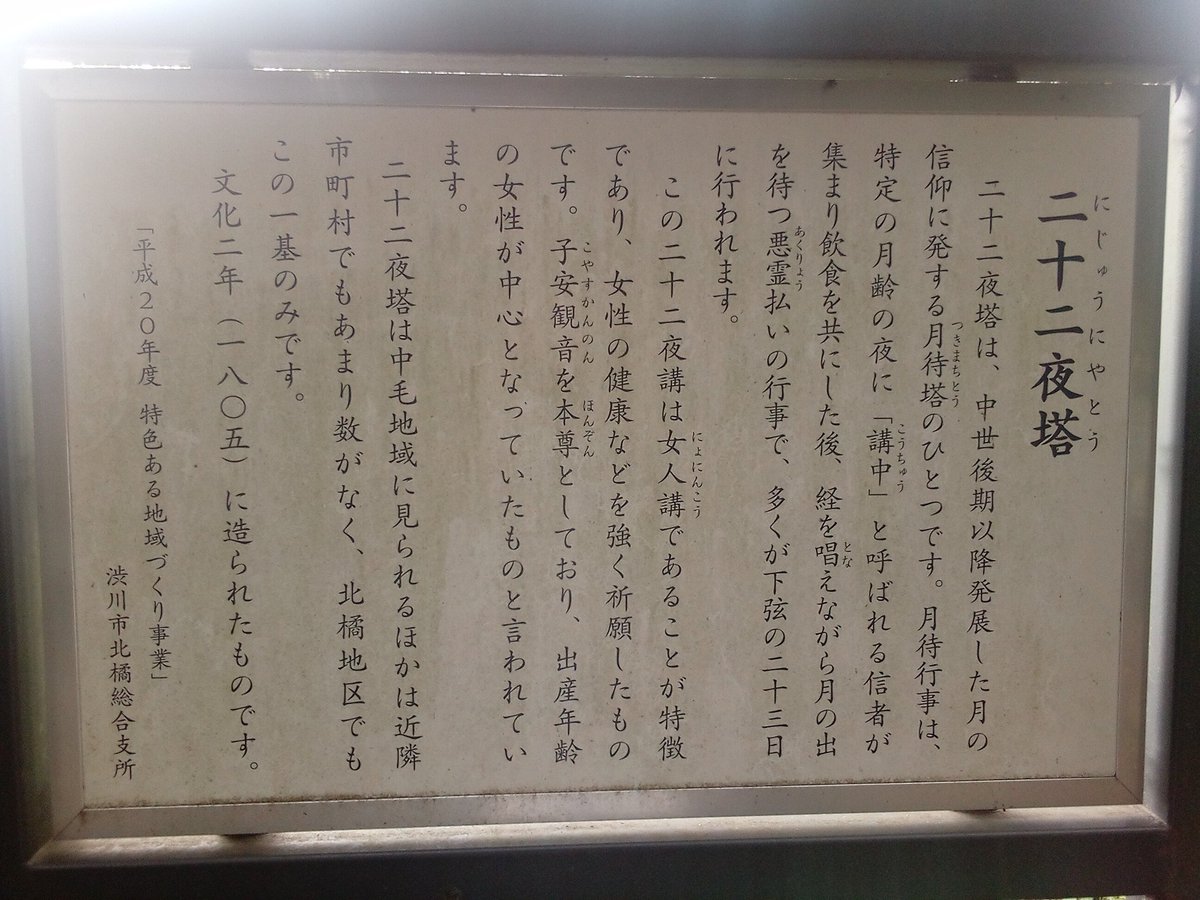 二十二夜塔
にじゅうにやとう
二十二夜塔は、中世後期以降発展した月の
信仰に発する月待塔のひとつです。月待行事は、
つきまちとう
特定の月齢の夜に「講中」と呼ばれる信者が
こうちゅう
集まり飲食を共にした後、経を唱えながら月の出
とな
を待つ悪霊払いの行事で、多くが下弦の二十三日
あくりょう
に行われます。
この二十二夜講は女人講であることが特徴
にょにんこう
であり、女性の健康などを強く祈願したもの
です。子安観音を本尊としており、出産年齢
こやすかんのん
ほんぞん
の女性が中心となっていたものと言われてい
ます。
二十二夜塔は中毛地域に見られるほかは近隣
市町村でもあまり数がなく、北橘地区でも
この一基のみです。
文化二年(一八〇五)に造られたものです。
「平成20年度 特色ある地域づくり事業」
渋川市北橘総合支所